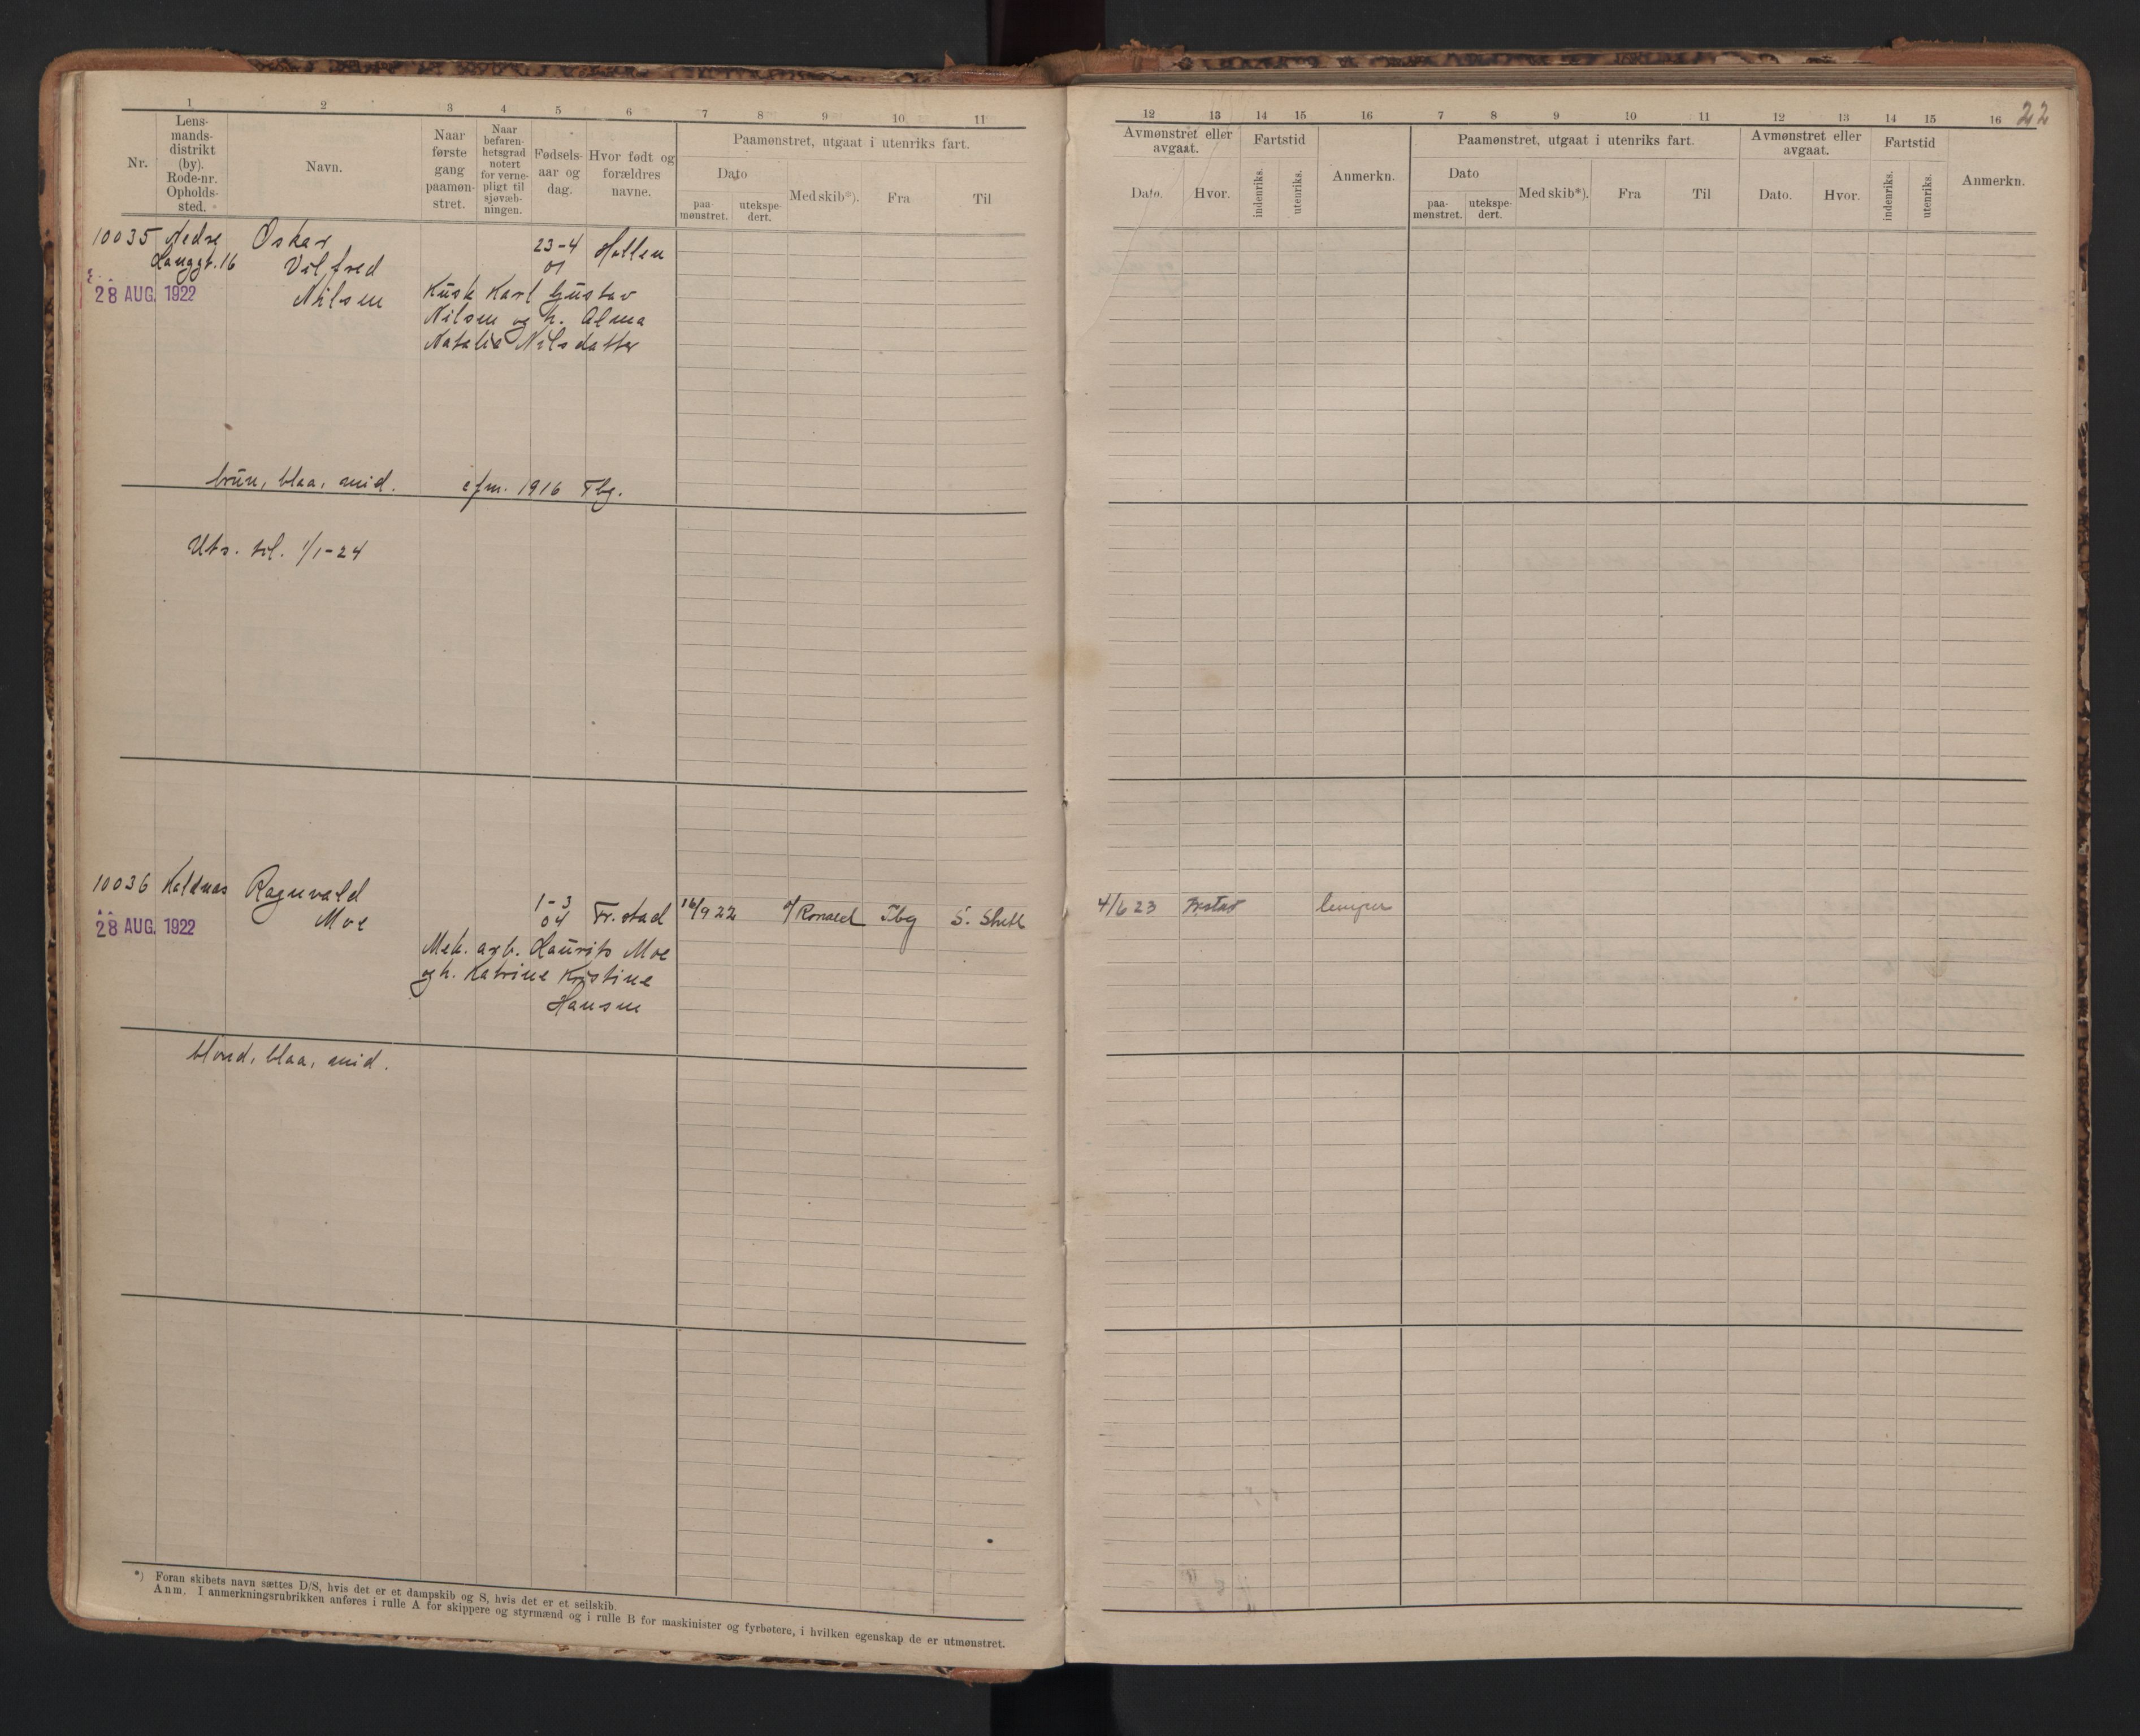 1 2 3 4 5 6 7 8 9 10 11
Nr.
Lens-
mands-
distrikt
(by).
Rode-nr.
Opholds-
sted.
Navn.
Naar
første
gang
paamøn-
stret.
Naar
befaren-
hetsgrad
notert
for verne-
pligt til
sjøvæb-
ningen.
Fødsels-
aar og
dag.
Hvor født og
forældres
navne.
Paamønstret, utgaat i utenriks fart.
Dato
paa-
mønstret.
utekspe-
dert.
Med skib*).
Fra
Til
10035 Nedre Oskar 23-4 Hallen
Langgt. 16 Vilfred 01
28 AUG. 1922 Nilsen Kusk Karl Gustav
Nilsen og h. Alma
Natalie Nilsdatter
brun, blaa, mid. efm. 1916 Tbg.
Uts. til. 1/1-24
10036 Kaldnæs Ragnvald 1-3
28 AUG. 1922 Moe 04 Fr.stad 16/9 22 Ronald Tbg
Mek. arb. Laurits Moe
og h. Katrine Kristine
Hansen
blond, blaa, mid.
*) Foran skibets navn sættes D/S, hvis det er et dampskib og S, hvis det er et seilskib.
Anm. I anmerkningsrubrikken anføres i rulle A for skippere og styrmænd og i rulle B for maskinister og fyrbøtere, i hvilken egenskap de er utmønstret.
12 13 14 15 16 7 8 9 10 11 12 13 14 15 16 22
Avmønstret eller
avgaat.
Dato.
Hvor.
Fartstid
indenriks.
utenriks.
Anmerkn.
Paamønstret, utgaat i utenriks fart.
Dato
paa-
mønstret.
utekspe-
dert.
Med skib*).
Fra
Til
Avmønstret eller
avgaat.
Dato.
Hvor.
Fartstid
indenriks.
utenriks.
Anmerkn.
4/6 23 Frstad lemper